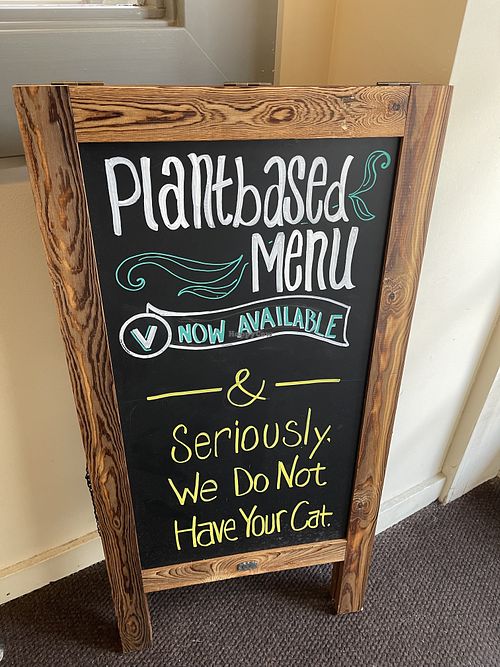 Plantbased
Menu
V NOW AVAILABLE
&
Seriously.
We Do Not
Have Your Cat.